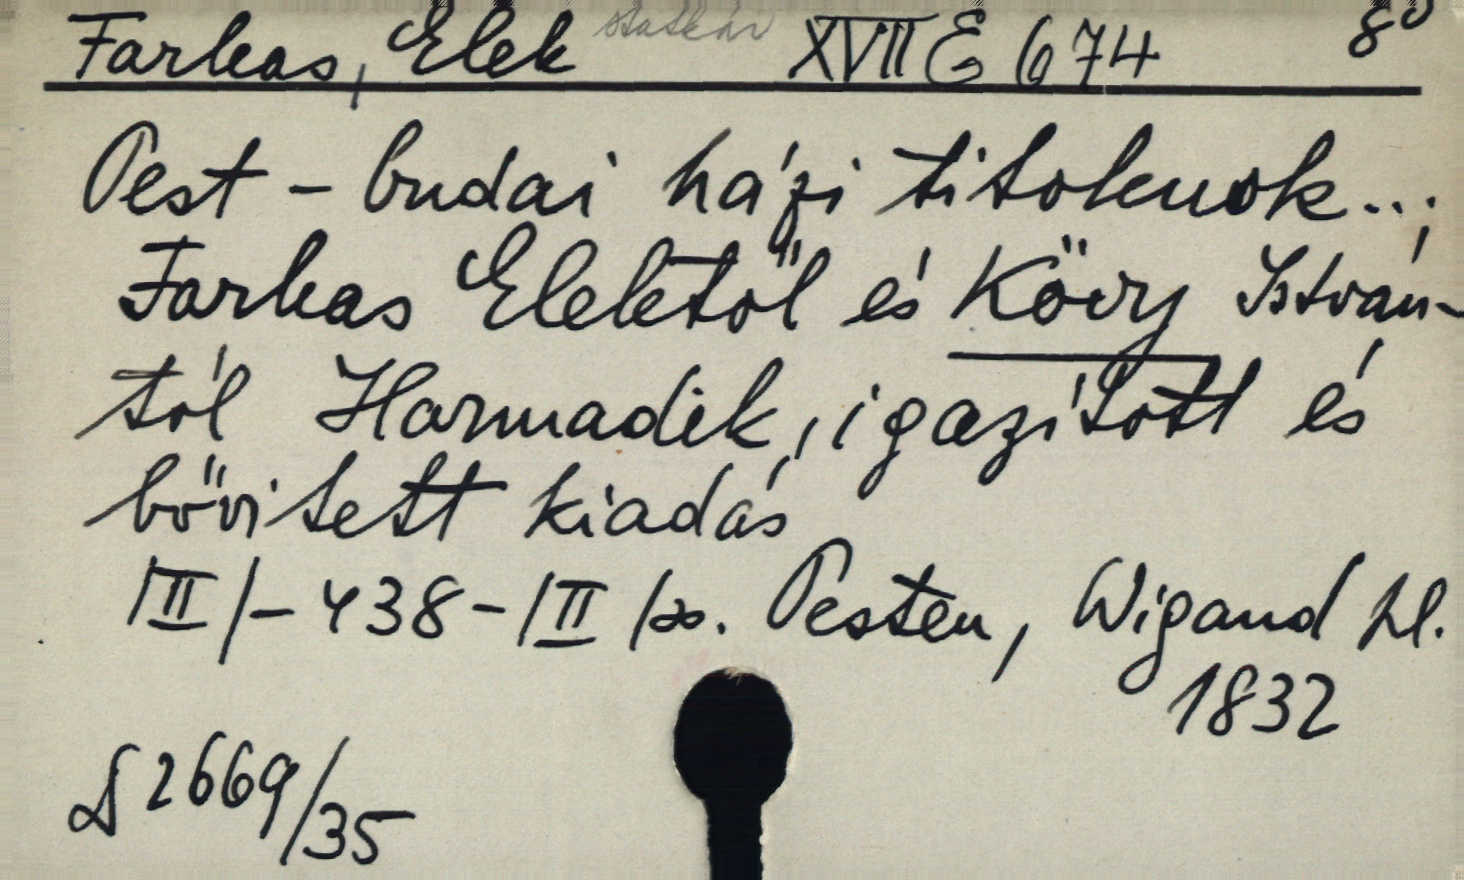 Farkas, Elek XVII E 674 8°
Pest-budai házi titoknok...;
Farkas Elektől és Kövy István-
tól Harmadik, igazított és
bővitett kiadás
/II/-438-/II/ s. Pesten, Wigand
1832
2669/35